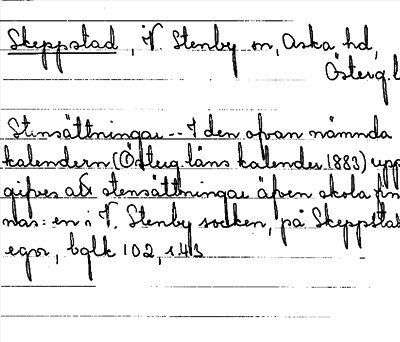 Skeppstad, V. Stenby sn, Aska hd,
Österg.l
Stensättningar -- I den ofvan nämnda
kalendern (Österg. läns kalender 1883) upp
gifves att stensättningar äfven skola fin
nas: en i V. Stenby socken, på Skeppsta
egor, bglk 102, 143